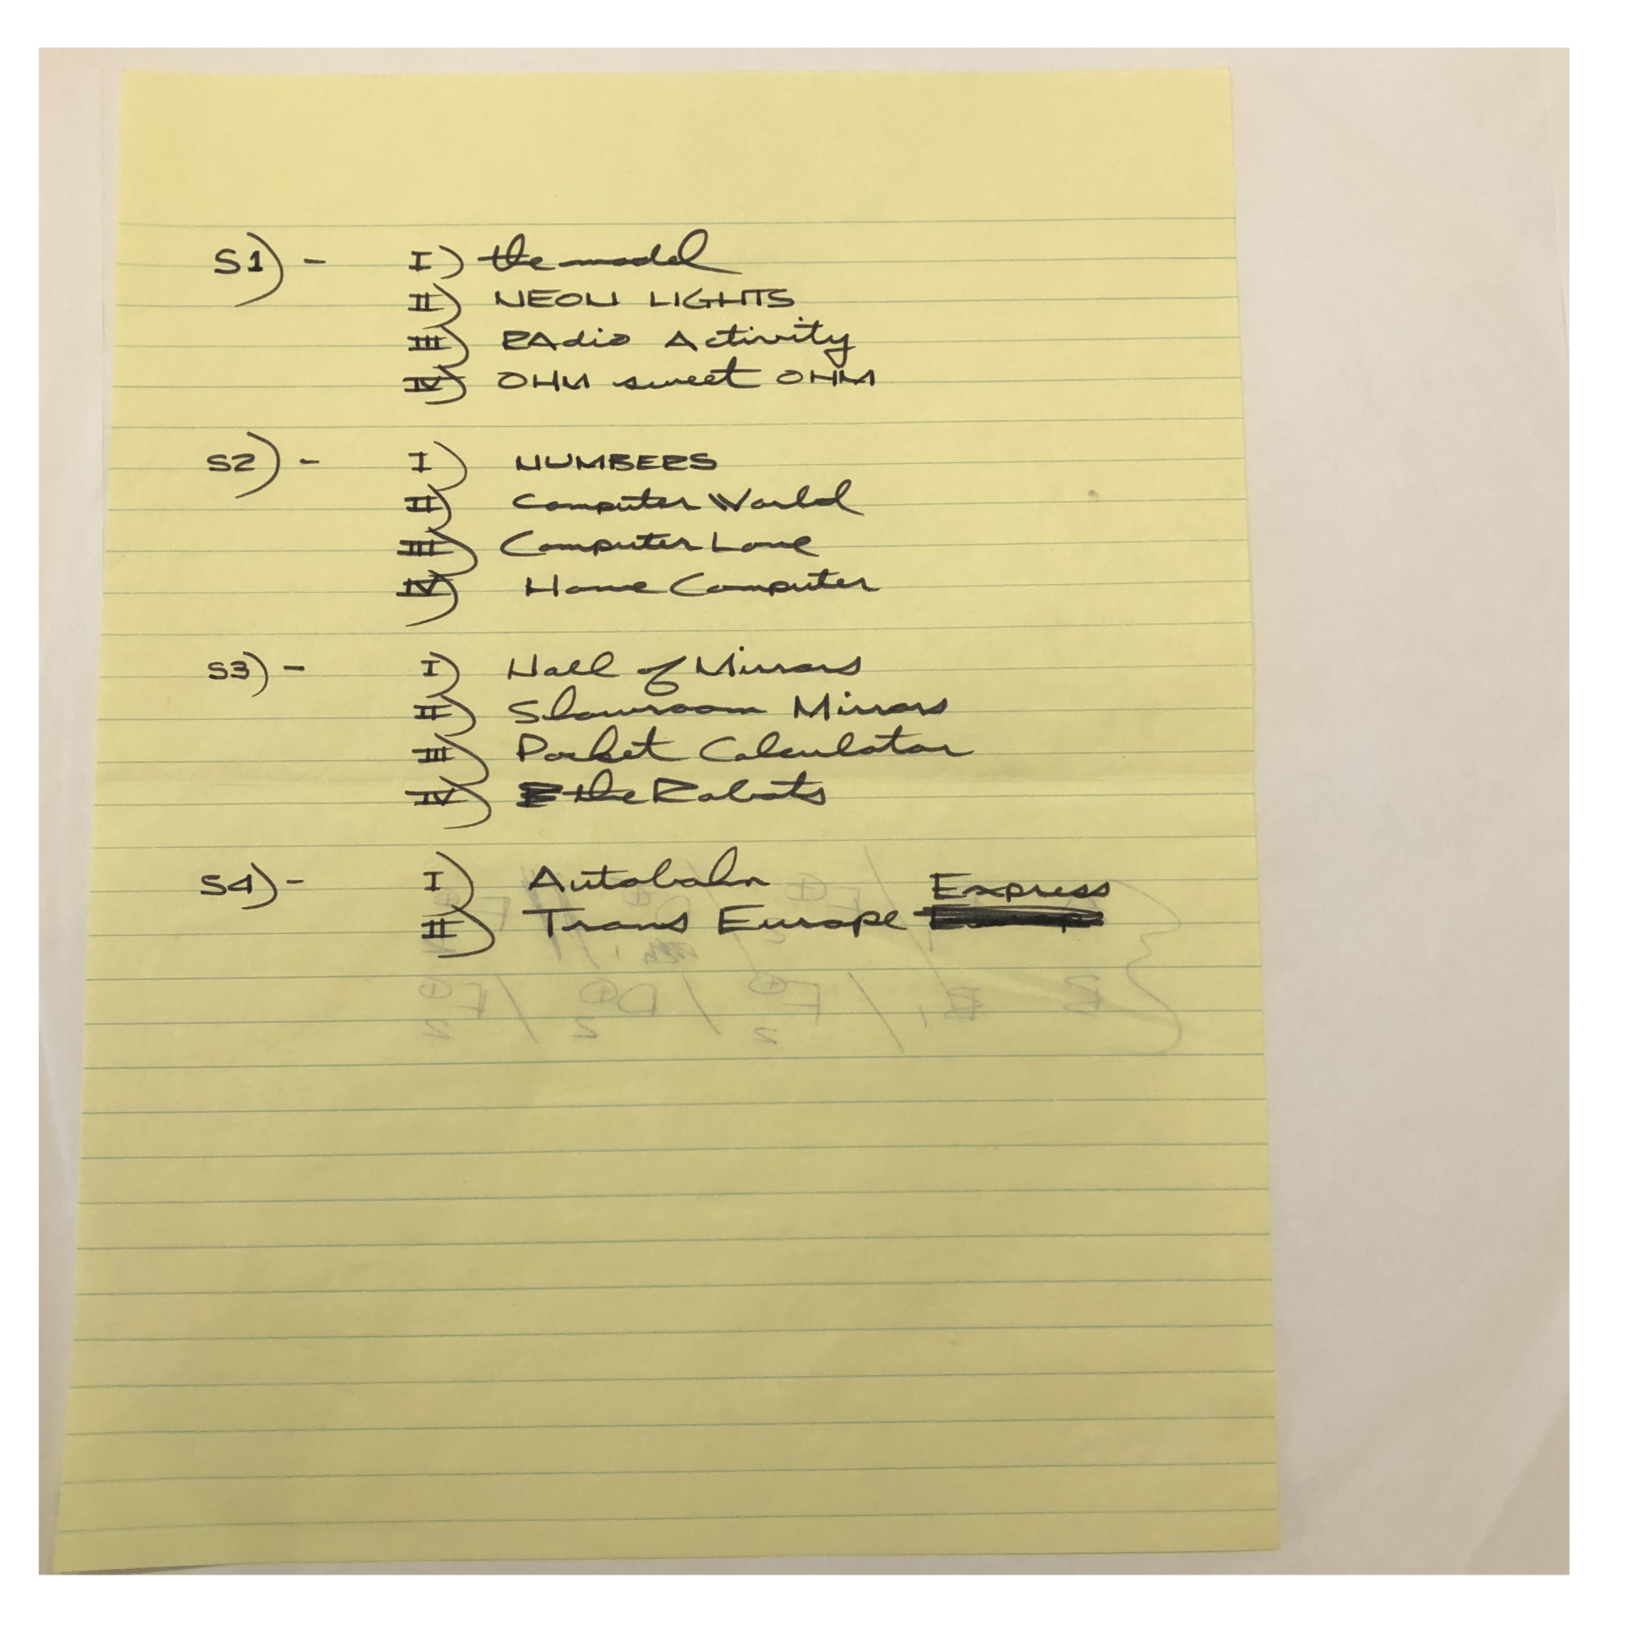 S1) - I) the model
II) NEON LIGHTS
III) RAdio Activity
IV) OHM sweet OHM
S2) - I) NUMBERS
II) Computer World
III) Computer Love
IV) Home Computer
S3) - I) Hall of Mirrors
II) Showroom Mirrors
III) Pocket Calculator
IV) the Robots
S4) - I) Autobahn
Express
II) Trans Europe